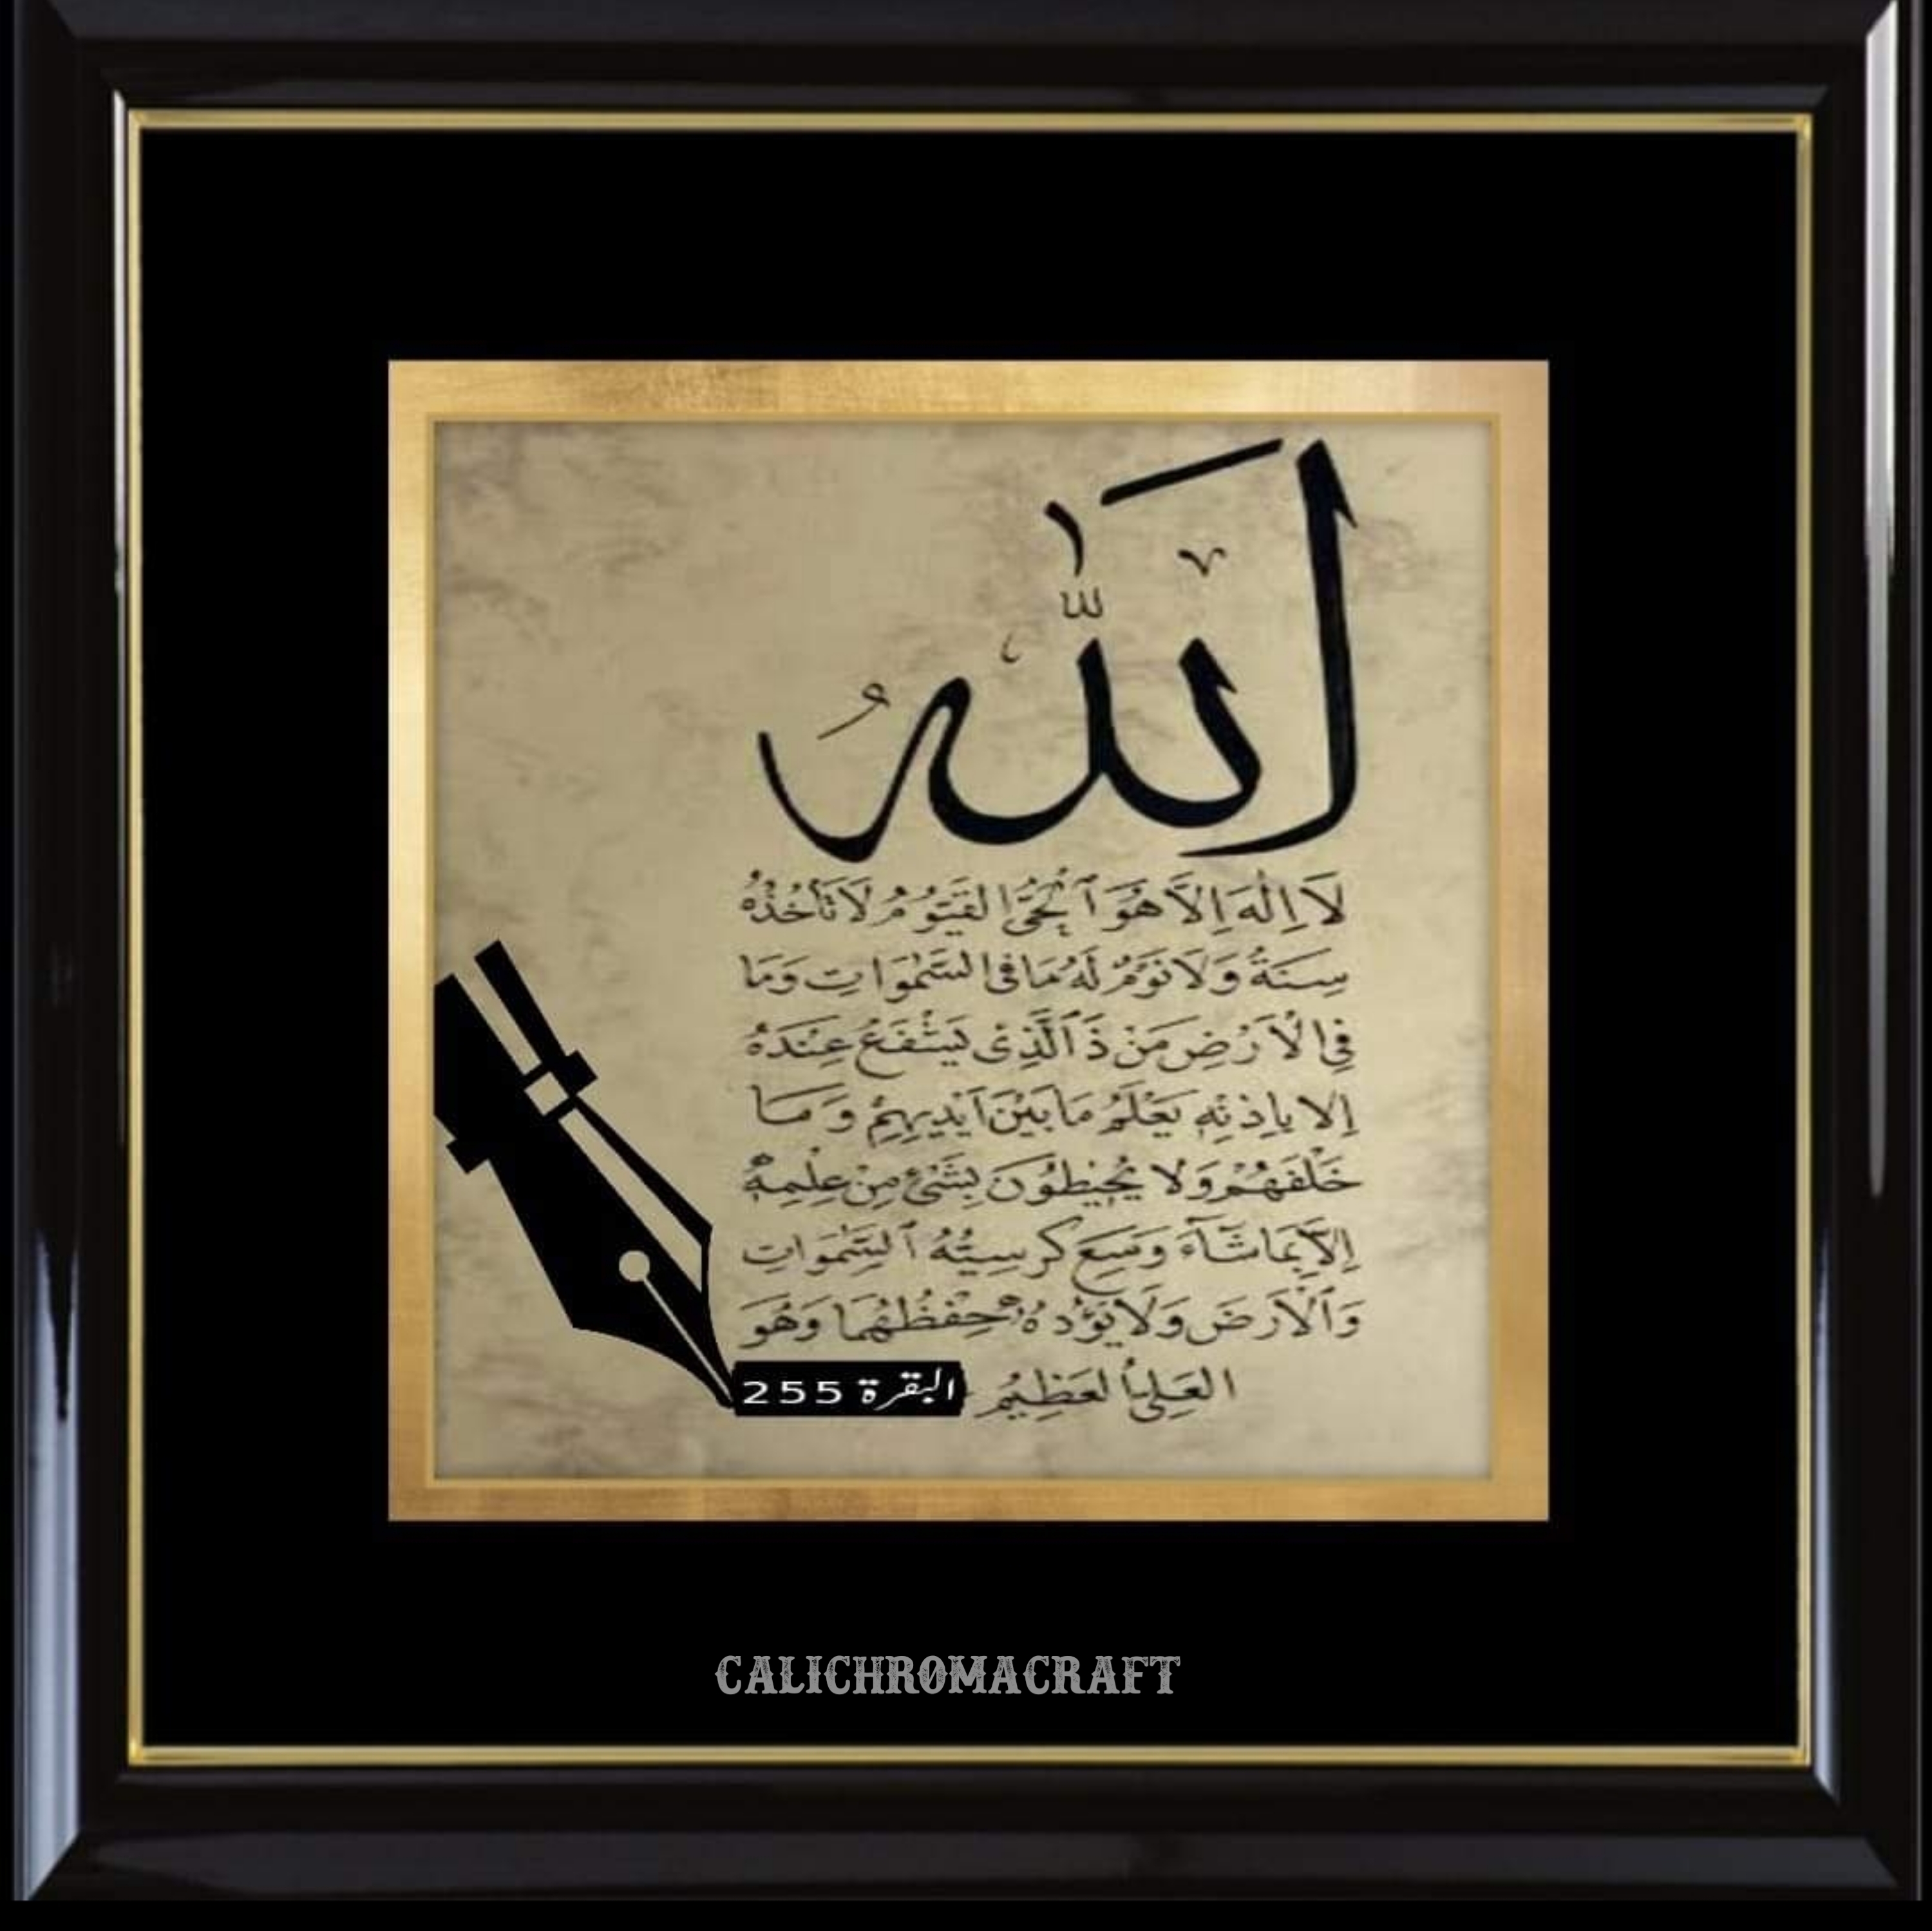 اَللّٰهُ
لَا اِلٰهَ اِلَّا هُوَ ٱلْحَىُّ القَيُّوْمُ لَا تَأْخُذُهُ
سِنَةٌ وَلَا نَوْمٌ لَهُ مَا فِى السَّمٰوَاتِ وَمَا
فِى الْاَرْضِ مَنْ ذَٱلَّذِى يَشْفَعُ عِنْدَهُ
اِلا بِاِذْنِهِ يَعْلَمُ مَا بَيْنَ اَيْدِيهِمْ وَمَا
خَلْفَهُمْ وَلَا يُحِيْطُوْنَ بِشَىْءٍ مِنْ عِلْمِهِ
اِلَّا بِمَا شَآءَ وَسِعَ كُرسِيُّهُ ٱلسَّمٰوَاتِ
وَٱلْاَرْضَ وَلَا يَؤُدهُ حِفْظُهُمَا وَهُوَ
العَلِىُّ العَظِيْمُ البقرة 255
CALICHROMACRAFT